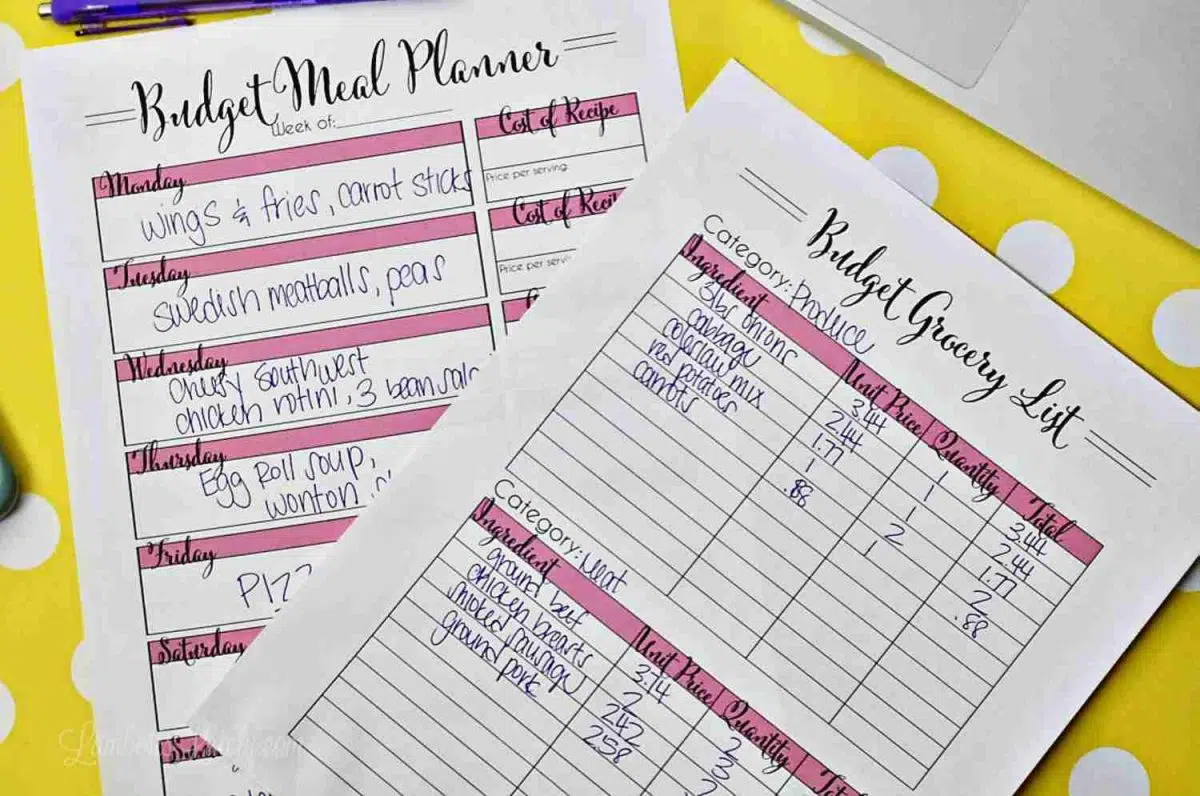 Budget Meal Planner
Week of:
Monday
wings & fries, carrot sticks
Cost of Recipe
Price per serving:
Tuesday
swedish meatballs, peas
Cost of Reci
Price per servi
Wednesday
cheesy southwest
chicken rotini, 3 bean sala
Thursday
Egg Roll soup,
wonton
Friday
PIZZ
Saturday
Budget Grocery List
Category: Produce
Ingredient Unit Price Quantity Total
3lbs onions 3.44 1 3.44
cabbage 2.44 1 2.44
coleslaw mix 1.77 1 1.77
red potatoes 1 2 2
carrots .88 1 .88
Category: Meat
Ingredient Unit Price Quantity Total
ground beef 3.74 2
chicken breasts 2 3
smoked sausage 2.42
ground pork 2.58